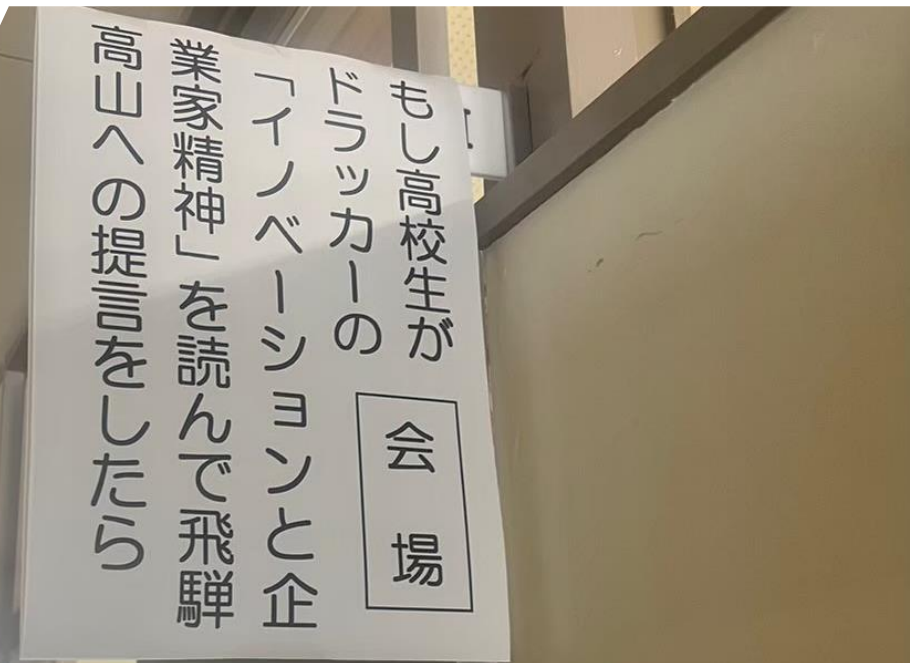 もし高校生が
ドラッカーの
「イノベーションと企
業家精神」を読んで飛騨
高山への提言をしたら
会場